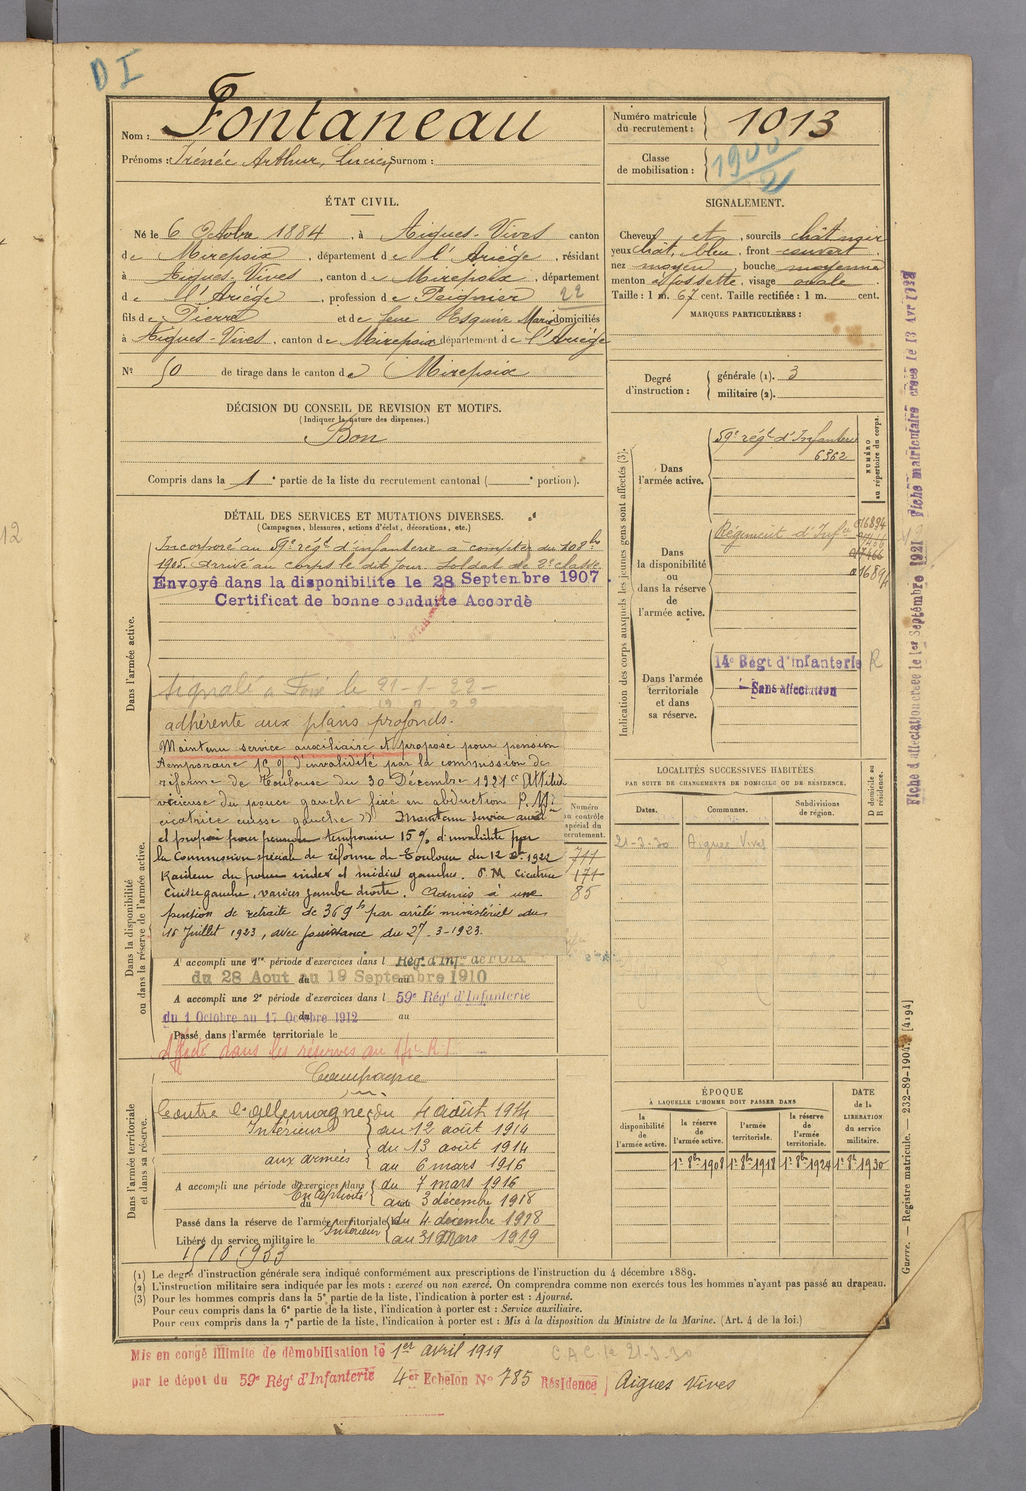 D I
Nom : Fontaneau
Prénoms : Irénée Arthur, Lucien Surnom :
Numéro matricule du recrutement : 1013
Classe de mobilisation : 1900/2
ÉTAT CIVIL.
Né le 6 Octobre 1884, à Aigues-Vives canton
de Mirepoix, département de l'Ariège, résidant
à Aigues-Vives, canton de Mirepoix, département
d e l'Ariège, profession de Peignier 22
fils de Pierre et de feue Esquive Marie domiciliés
à Aigues-Vives, canton de Mirepoix département de l'Ariège
N° 50 de tirage dans le canton de Mirepoix
SIGNALEMENT.
Cheveux et, sourcils chât noir
yeux chât, bleu, front couvert
nez moyen, bouche moyenne
menton à fossette, visage ovale.
Taille : 1 m. 67 cent. Taille rectifiée : 1 m. cent.
MARQUES PARTICULIÈRES :
Degré d'instruction :
générale (1). 3
militaire (2).
DÉCISION DU CONSEIL DE REVISION ET MOTIFS.
(Indiquer la nature des dispenses.)
Bon
Compris dans la 1e partie de la liste du recrutement cantonal ( e portion).
DÉTAIL DES SERVICES ET MUTATIONS DIVERSES.
(Campagnes, blessures, actions d'éclat, décorations, etc.)
Dans l'armée active.
Incorporé au 59e régt d'infanterie à compter du 10 8bre
1905. Arrivé au corps le dit jour. Soldat de 2e classe.
Envoyé dans la disponibilité le 28 Septembre 1907.
Certificat de bonne conduite Accordé
Signalé a Foix le 21-1-22-
adhérente aux plans profonds.
Maintenu service auxiliaire et proposé pour pension
temporaire 15% d'invalidité par la commission de
réforme de Toulouse du 30 Décembre 1921 "Attitude
vicieuse du pouce gauche fixé en abduction P.M.
cicatrice cuisse gauche" Maintenu service auxil
et proposé pour pension temporaire 15% d'invalidité par
la Commission spéciale de réforme de Toulouse du 12 1922
Raideur du pouce index et médius gauches. P.M Cicatrice
cuisse gauche, varices jambe droite. Admis à une
pension de retraite de 369 f par arrêté ministériel du
16 Juillet 1923, avec jouissance du 27-3-1923.
Dans la disponibilité ou dans la réserve de l'armée active.
Numéro au contrôle spécial du recrutement.
711
171
85
A accompli une 1re période d'exercices dans l Régt d'Infie de FOIX
du 28 Aout au 19 Septembre 1910
A accompli une 2e période d'exercices dans l 59e Régt d'Infanterie
du 1 Octobre au 17 Octobre 1912
Passé dans l'armée territoriale le
Affecté dans les réserves au 14e R I
Dans l'armée territoriale et dans sa réserve.
Campagne
Contre l'allemagne du 4 août 1914
Intérieur au 12 août 1914
aux armées du 13 août 1914
au 6 mars 1916
A accompli une période d'exercices dans
En captivité du 7 mars 1916
au 3 décembre 1918
Passé dans la réserve de l'armée territoriale le
Intérieur du 4 décembre 1918
au 31 Mars 1919
Libéré du service militaire le
15 10 1933
Indication des corps auxquels les jeunes gens sont affectés (3).
NUMÉRO au répertoire du corps.
Dans l'armée active.
59e régt d'Infanterie
6362
Dans la disponibilité ou dans la réserve de l'armée active.
Régiment d'Infie
16894
Dans l'armée territoriale et dans sa réserve.
14e Régt d'Infanterie R
Sans affectation
LOCALITÉS SUCCESSIVES HABITÉES
PAR SUITE DE CHANGEMENTS DE DOMICILE OU DE RÉSIDENCE.
D domicile ou R résidence.
Dates. Communes. Subdivisions de région.
21-3-30 Aigues Vives
ÉPOQUE
À LAQUELLE L'HOMME DOIT PASSER DANS
DATE de la LIBÉRATION du service militaire.
la disponibilité de l'armée active.
la réserve de l'armée active.
l'armée territoriale.
la réserve de l'armée territoriale.
1r 8b 1908 1r 8b 1918 1r 8b 1924 1r 8b 1930
(1) Le degré d'instruction générale sera indiqué conformément aux prescriptions de l'instruction du 4 décembre 1889.
(2) L'instruction militaire sera indiquée par les mots : exercé ou non exercé. On comprendra comme non exercés tous les hommes n'ayant pas passé au drapeau.
(3) Pour les hommes compris dans la 5e partie de la liste, l'indication à porter est : Ajourné.
Pour ceux compris dans la 6e partie de la liste, l'indication à porter est : Service auxiliaire.
Pour ceux compris dans la 7e partie de la liste, l'indication à porter est : Mis à la disposition du Ministre de la Marine. (Art. 4 de la loi.)
Mis en congé illimité de démobilisation le 1er avril 1919 CAC. le 21-3-30
par le dépot du 59e Régt d'Infanterie 4er Echelon No 785 Résidence Aigues Vives
Fiche d'affectation créée le 1er Septembre 1921 Fiche matriculaire créée le 13 Avr 1928
Guerre. — Registre matricule. — 232-89-1904. [4194]
12